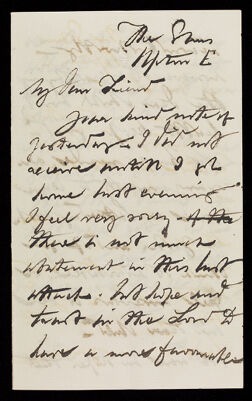 The Elms
Upton E
My Dear Friend
Your kind note of
yesterday I did not
receive untill I got
home last evening
I feel very sorry
there is not much
abatement in this last
attack. but hope and
trust in the Lord to
have a more favourable